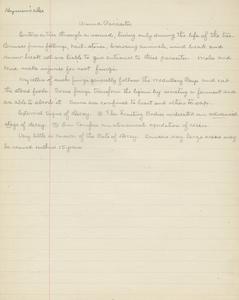 Wound Parasites
Enters a tree through a wound, living only during the life of the tree.
Causes from fellings, hail-stones, browsing animals, wind break and
snow break also are liable to give entrance to these parasites. Moles and
mice make injuries for root fungi.
Mycelium of such fungi generally follows the Medullary Rays and eat
the stored foods. Some fungi transform the lignin by secreting a ferment and
are able to absorb it. Some are confined to heart and others to sap.
External signs of Decay. 1) The fruiting Bodies indicate an advanced
stage of decay. 2) In Conifers an abnormal exudation of resin.
Very little is known of the Rate of Decay. Conifers very large areas may
be ruined within 15 years